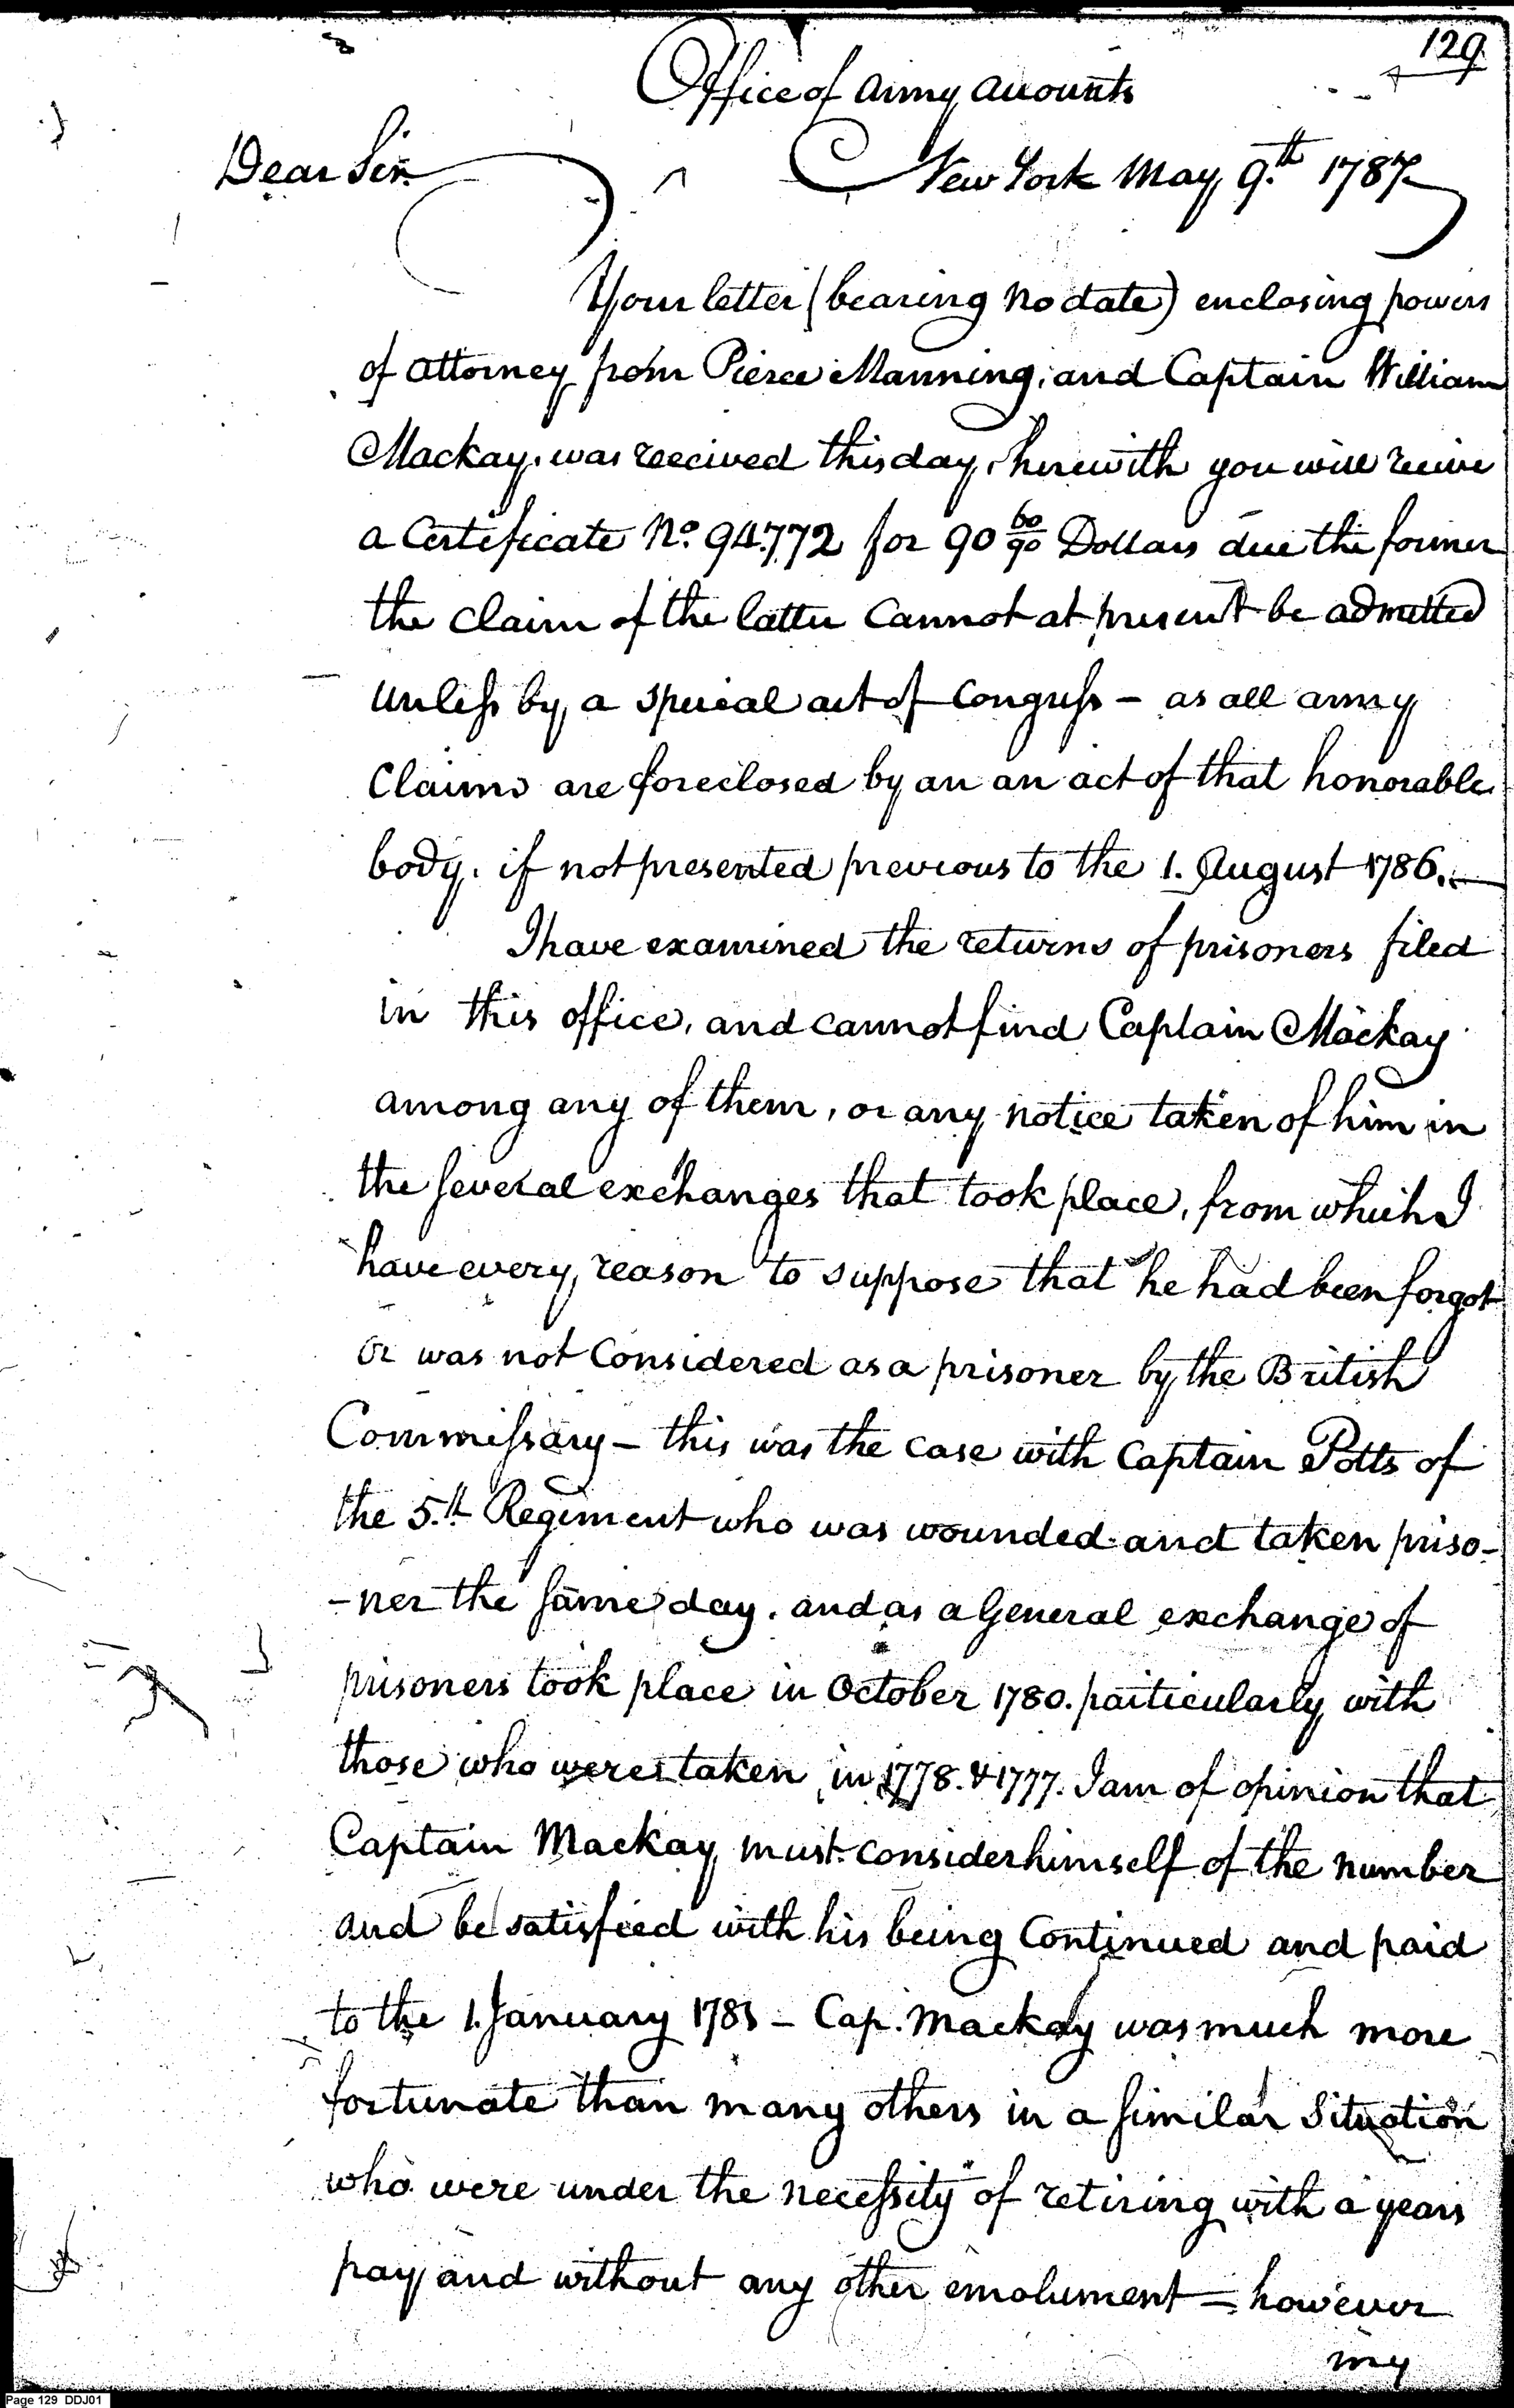 129
Office of Army Accounts
Dear Sir
New York May 9.th 1787
Your letter (bearing no date) enclosing powers
of attorney from Pierce Manning, and Captain William
Mackay, was received this day, herewith you will receive
a Certificate No. 94.772 for 90 60/90 Dollars due the former
the claim of the latter cannot at present be admitted
unless by a special act of Congress - as all army
Claims are foreclosed by an an act of that honorable
body, if not presented previous to the 1. August 1786.
I have examined the returns of prisoners filed
in this office, and cannot find Captain Mackay
among any of them, or any notice taken of him in
the several exchanges that took place, from which I
have every reason to suppose that he had been forgot
or was not Considered as a prisoner by the British
Commissary - this was the case with Captain Potts of
the 5.th Regiment who was wounded and taken priso-
-ner the same day. and as a General exchange of
prisoners took place in October 1780. particularly with
those who were taken in 1778. & 1777. I am of opinion that
Captain Mackay must consider himself of the number
and be satisfied with his being Continued and paid
to the 1. January 1781 - Cap. Mackay was much more
fortunate than many others in a similar Situation
who were under the necessity of retiring with a years
pay and without any other emolument - however
my
Page 129 DDJ01